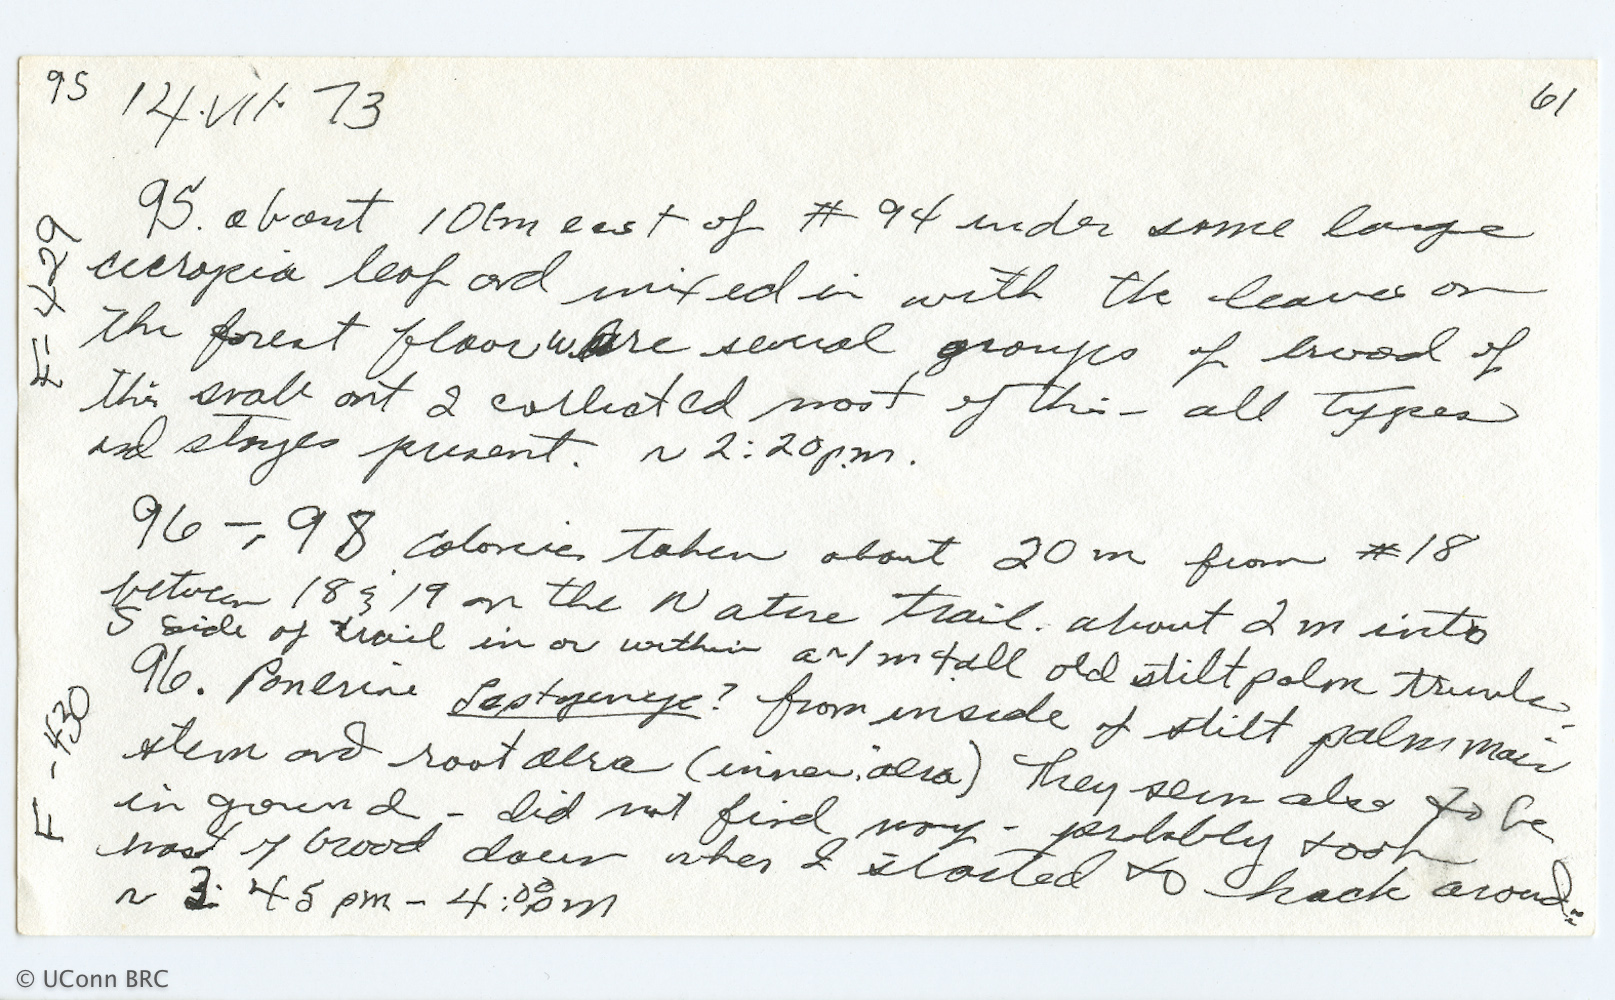 95 14.VII.73 61
F-429
95. about 10m east of # 94 under some large
cecropia leaf and mixed in with the leaves on
the forest floor were several groups of brood of
this small ant I collected most of this - all types
and stages present. ~ 2:20pm.
96 -, 98 colonies taken about 20 m from #18
between 18 & 19 on the Nature trail. about 2 m into
S side of trail in or within a ~1 m tall old stilt palm trunk.
F-430
96. Ponerine ? from inside of stilt palm main
stem and root area (inner area) They seem also to be
in ground - did not find many - probably took
most of brood down when I started to hack around.
~ 3:45 pm - 4:00 pm
© UConn BRC